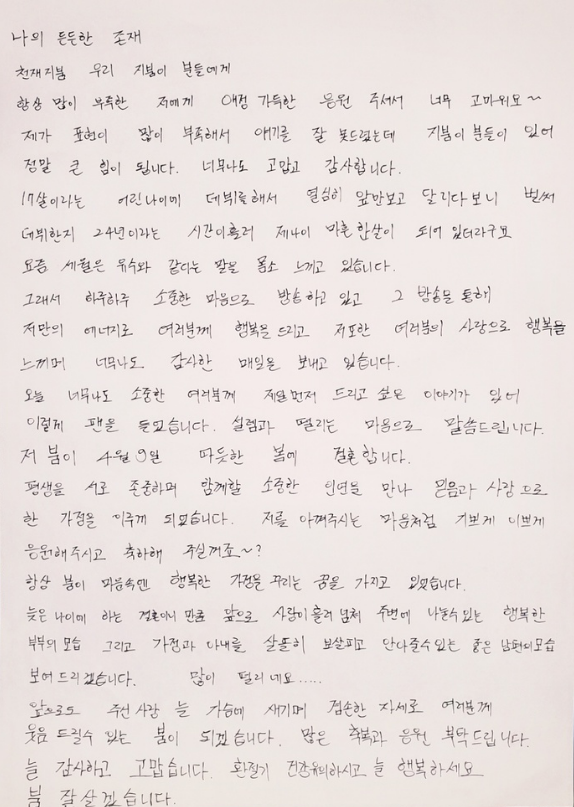 나의 든든한 존재
천재지붐 우리 지붐이 분들에게
항상 많이 부족한 저에게 애정 가득한 응원 주셔서 너무 고마워요~
제가 표현이 많이 부족해서 얘기를 잘 못드렸는데 지붐이 분들이 있어
정말 큰 힘이 됩니다. 너무나도 고맙고 감사합니다.
17살이라는 어린나이에 데뷔를해서 열심히 앞만보고 달리다 보니 벌써
데뷔한지 24년이라는 시간이흘러 제나이 마흔한살이 되어 있더라구요
요즘 세월은 유수와 같다는 말을 몸소 느끼고 있습니다.
그래서 하루하루 소중한 마음으로 방송하고 있고 그 방송을 통해
저만의 에너지로 여러분께 행복을 드리고 저또한 여러분의 사랑으로 행복을
느끼며 너무나도 감사한 매일을 보내고 있습니다.
오늘 너무나도 소중한 여러분께 제일먼저 드리고 싶은 이야기가 있어
이렇게 펜을 들었습니다. 설렘과 떨리는 마음으로 말씀드립니다.
저 붐이 4월 9일 따듯한 봄에 결혼합니다.
평생을 서로 존중하며 함께할 소중한 인연을 만나 믿음과 사랑 으로
한 가정을 이루게 되었습니다. 저를 아껴주시는 마음처럼 기쁘게 이쁘게
응원해주시고 축하해 주실꺼죠~?
항상 붐이 마음속엔 행복한 가정을 꾸리는 꿈을 가지고 있었습니다.
늦은 나이에 하는 결혼이니 만큼 앞으로 사랑이흘러 넘쳐 주변에 나눌수있는 행복한
부부의 모습 그리고 가정과 아내를 살뜰히 보살피고 안아줄수있는 좋은 남편의모습
보여드리겠습니다. 많이 떨리네요.....
앞으로도 주신 사랑 늘 가슴에 새기며 겸손한 자세로 여러분께
웃음 드릴수 있는 붐이 되겠습니다. 많은 축복과 응원 부탁드립니다.
늘 감사하고 고맙습니다. 환절기 건강유의하시고 늘 행복하세요
붐 잘살겠습니다.